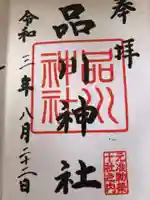 奉拝
品川神社
令和三年八月二十二日
品川
神社
元准勅祭
十社之内